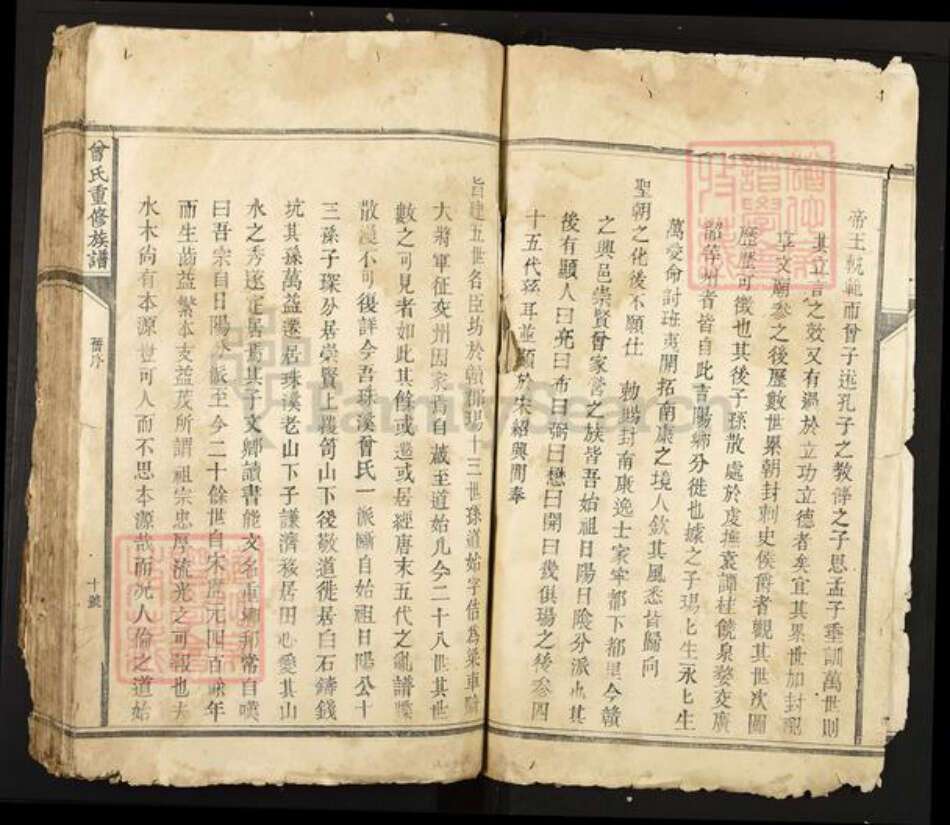 帝王軌範而曾子述孔子之教傳之子思孟子垂訓萬世則
其立言之效又有過於立功立德者矣宜其累世加封配
享文廟參之後歷數世累朝封刺史侯爵者觀其世次圖
歷歷可徵也其後子孫散處於虔撫袁譚桂饒泉婺交廣
韶等州者皆自此吉陽鄉分徙也據之子瑒瑒生永永生
萬受命討班夷開拓南康之境人欽其風悉皆歸向
聖朝之化後不願仕 勅賜封南康逸士家寧都下都里今贛
之興邑崇賢曾家營之族皆吾始祖日陽日險分派也其
後有顯人曰亮曰布曰弼曰懋曰開曰幾俱瑒之後參四
十五代孫耳並顯於宋紹興間奉
旨建五世名臣坊於贛郡瑒十三世孫道始字佶為梁車騎
大將軍征交州因家焉自蒧至道始凡今二十八世其世
數之可見者如此其餘或遷或居經唐末五代之亂譜牒
散漫不可復詳今吾珠溪曾氏一派斷自始祖日陽公十
三孫子琛分居崇賢上護笥山下後敬道徙居白石鑄錢
坑其孫萬益遷居珠溪老山下子謙濟移居田心愛其山
水之秀遂定居焉其子文鄉讀書能文名重鄉邦常自嘆
曰吾宗自日陽公派至今二十餘世自宋歷元四百餘年
而生齒益繁本支益茂所謂祖宗忠厚流光之可報也夫
水木尚有本源豈可人而不思本源哉而況人倫之道始
曾氏重修族譜
舊序
十號
FamilySearch